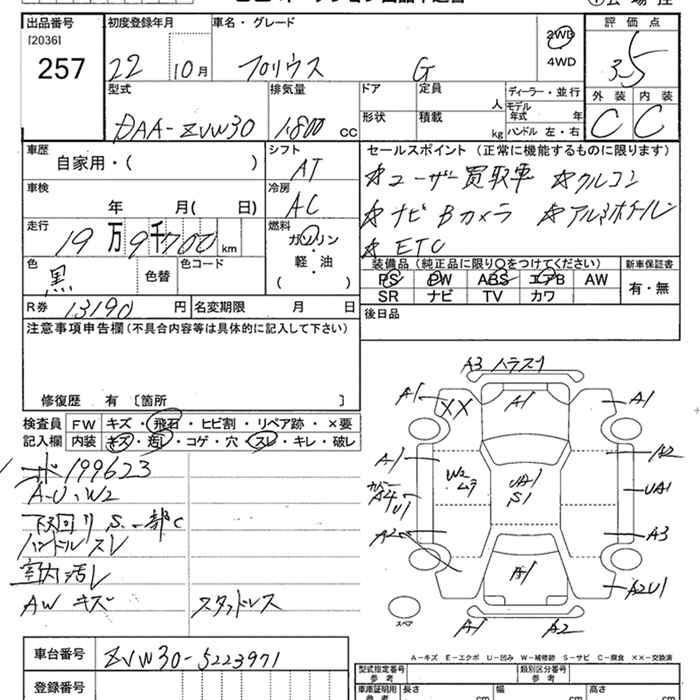 出品番号 初度登録年月 車名・グレード 2WD 評価点
[2036] 22 10月 プリウス G 4WD 3.5
257
型式 排気量 ドア 定員 人 ディーラー・並行 外装 内装
DAA-ZVW30 1.800 cc 形状 積載 kg モデル年式 年 C C
ハンドル 左・右
車歴 シフト セールスポイント (正常に機能するものに限ります)
自家用・( ) AT ☆ユーザー買取車 ☆クルコン
車検 冷房 ☆ナビ Bカメラ ☆アルミホイール
年 月( 日) AC ☆ETC
走行 燃料 装備品 (純正品に限り○をつけてください) 新車保証書
19万9千700km ガソリン PS PW ABS エアB AW 有・無
色 色替 色コード 軽・油 SR ナビ TV カワ
黒 ( )
R券 13190円 名変期限 月 日 後日品
注意事項申告欄(不具合内容等は具体的に記入して下さい)
修復歴 有 〔箇所 〕
検査員 FW キズ・飛石・ヒビ割・リペア跡・×要
記入欄 内装 キズ・汚レ・コゲ・穴・スレ・キレ・破レ
199623
A-U、W2
下回り S、一部C
ハンドルスレ
室内汚レ
AW キズ スタッドレス
A3
A1 XX A1 A1
A1 W2 UA1 S1 A2
A4 U1 UA1
A2 A3
A1 A2U1
スペア A1 A2
A-キズ E-エクボ U-凹み W-補修跡 S-サビ C-腐食 ××-交換済
車台番号 ZVW30-5223971 型式指定番号 参考 類別区分番号 参考
登録番号 車庫証明用 参考 長さ cm 幅 cm 高さ cm